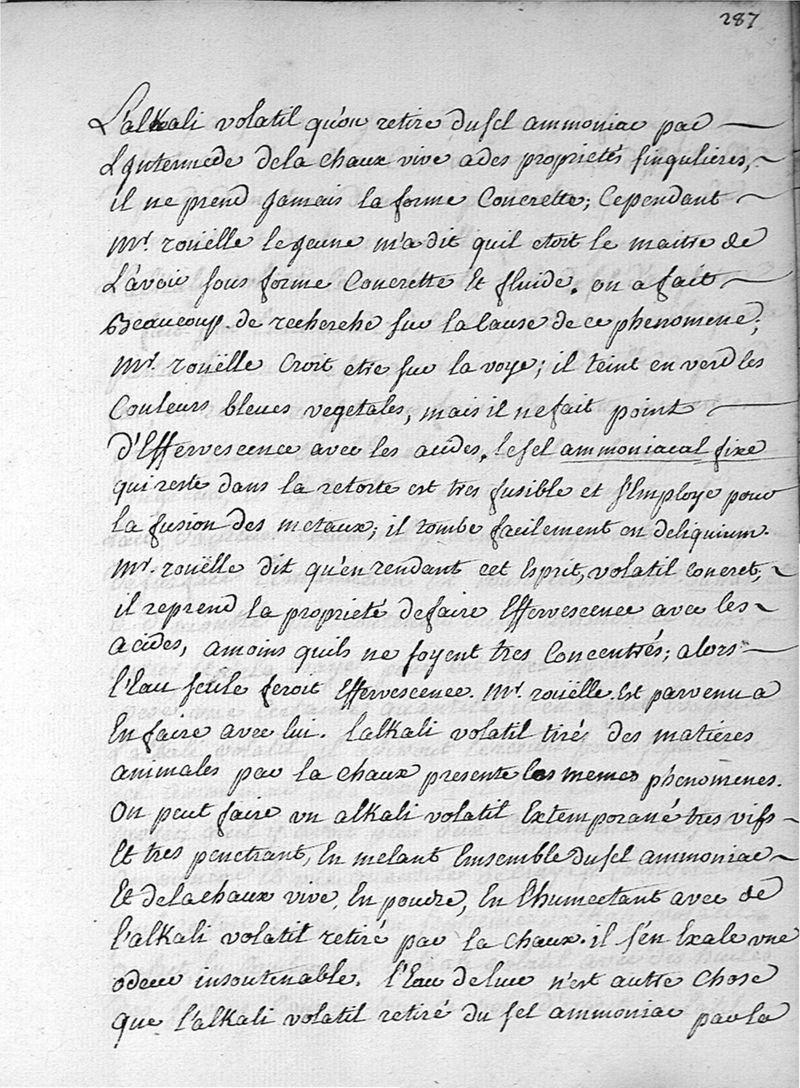 287
L'alkali volatil qu'on retire du sel ammoniac par
L'jntermede de la chaux vive a des proprietés singulieres,
il ne prend Jamais la forme Concrette; Cependant
Mr. roüelle le jeune m'a dit quil etoit le maitre de
L'avoir sous forme Concrette Et fluide. on a fait
Beaucoup de recherche sur la Cause de ce phenomene;
Mr. roüelle Croit etre sur la voye; il teint en verd les
Couleurs bleues vegetales, mais il ne fait point
d'Effervescence avec les acides. le sel ammoniacal fixe
qui reste dans la retorte est tres fusible et s'Employe pour
la fusion des metaux; il tombe facilement en deliquium.
Mr. roüelle dit qu'en rendant cet Esprit, volatil concret,
il reprend la proprieté de faire Effervescence avec les
acides, a moins quils ne soyent tres Concentrés; alors
l'Eau seule feroit Effervescence. Mr. roüelle Est parvenu a
En faire avec lui. l'alkali volatil tiré des matieres
animales par la chaux presente les memes phenomenes.
On peut faire vn alkali volatil Extemporané tres vifs
Et tres penetrant, En melant Ensemble du sel ammoniac
Et de la chaux vive, En poudre, En l'humectant avec de
l'alkali volatil retiré par la chaux. il s'en Exale vne
odeur insoutenable. l'Eau de luce n'est autre Chose
que l'alkali volatil retiré du sel ammoniac par la